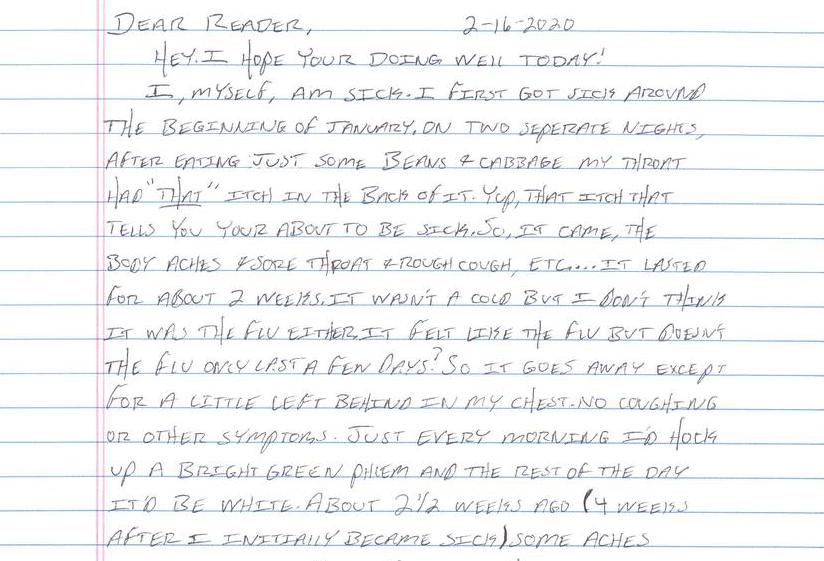 DEAR READER, 2-16-2020
HEY. I HOPE YOUR DOING WELL TODAY!
I, MYSELF, AM SICK. I FIRST GOT SICK AROUND
THE BEGINNING OF JANUARY. ON TWO SEPERATE NIGHTS,
AFTER EATING JUST SOME BEANS & CABBAGE MY THROAT
HAD "THAT" ITCH IN THE BACK OF IT. YUP, THAT ITCH THAT
TELLS YOU YOUR ABOUT TO BE SICK. SO, IT CAME, THE
BODY ACHES & SORE THROAT & ROUGH COUGH, ETC.... IT LASTED
FOR ABOUT 2 WEEKS. IT WASN'T A COLD BUT I DON'T THINK
IT WAS THE FLU EITHER. IT FELT LIKE THE FLU BUT DOESN'T
THE FLU ONLY LAST A FEW DAYS? SO IT GOES AWAY EXCEPT
FOR A LITTLE LEFT BEHIND IN MY CHEST. NO COUGHING
OR OTHER SYMPTOMS. JUST EVERY MORNING I'D HOCK
UP A BRIGHT GREEN PHLEM AND THE REST OF THE DAY
IT'D BE WHITE. ABOUT 2 1/2 WEEKS AGO (4 WEEKS
AFTER I INITIALLY BECAME SICK) SOME ACHES